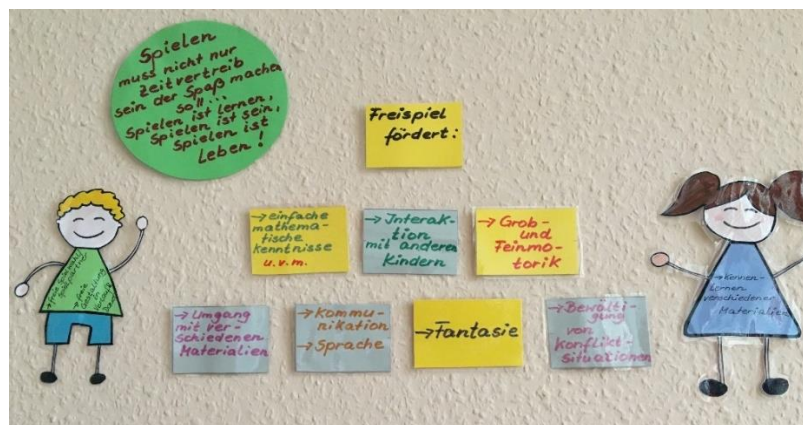 Spielen
muss nicht nur
Zeitvertreib
sein der Spaß machen
soll...
Spielen ist lernen,
Spielen ist sein,
Spielen ist
Leben!
Freispiel
fördert:
→ einfache
mathema-
tische
Kenntnisse
u.v.m.
→ Interak-
tion
mit anderen
Kindern
→ Grob-
und
Feinmo-
torik
→ Umgang
mit ver-
schiedenen
Materialien
→ Kommu-
nikation
→ Sprache
→ Fantasie
→ Bewälti-
gung
von
Konflikt-
situationen
→ freie
→ freie
Gestaltung
→ Kennen-
lernen
verschiedener
Materialien